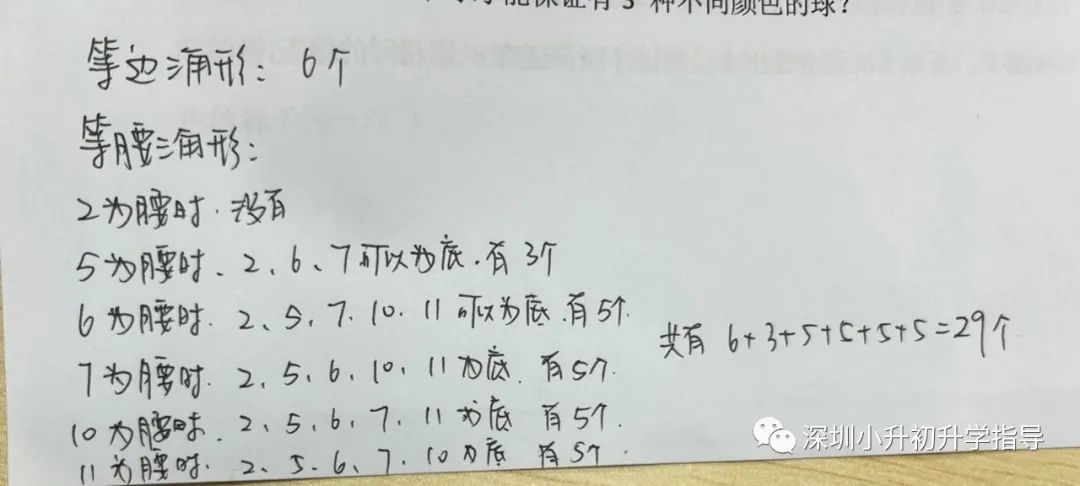 能保证有3种不同颜色的球?
等边三角形: 6个
等腰三角形:
2为腰时.没有
5为腰时、2、6、7可以为底.有3个
6为腰时.2、5、7、10、11可以为底.有5个.
共有 6+3+5+5+5+5=29个
7为腰时.2、5、6、10、11为底.有5个.
10为腰时.2、5、6、7、11为底 有5个.
11为腰时.2、5、6、7、10为底 有5个.
深圳小升初升学指导